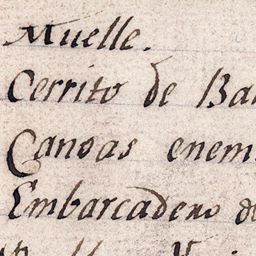 Muelle.
Cerrito de Ba
Canoas enem
Embarcadero d